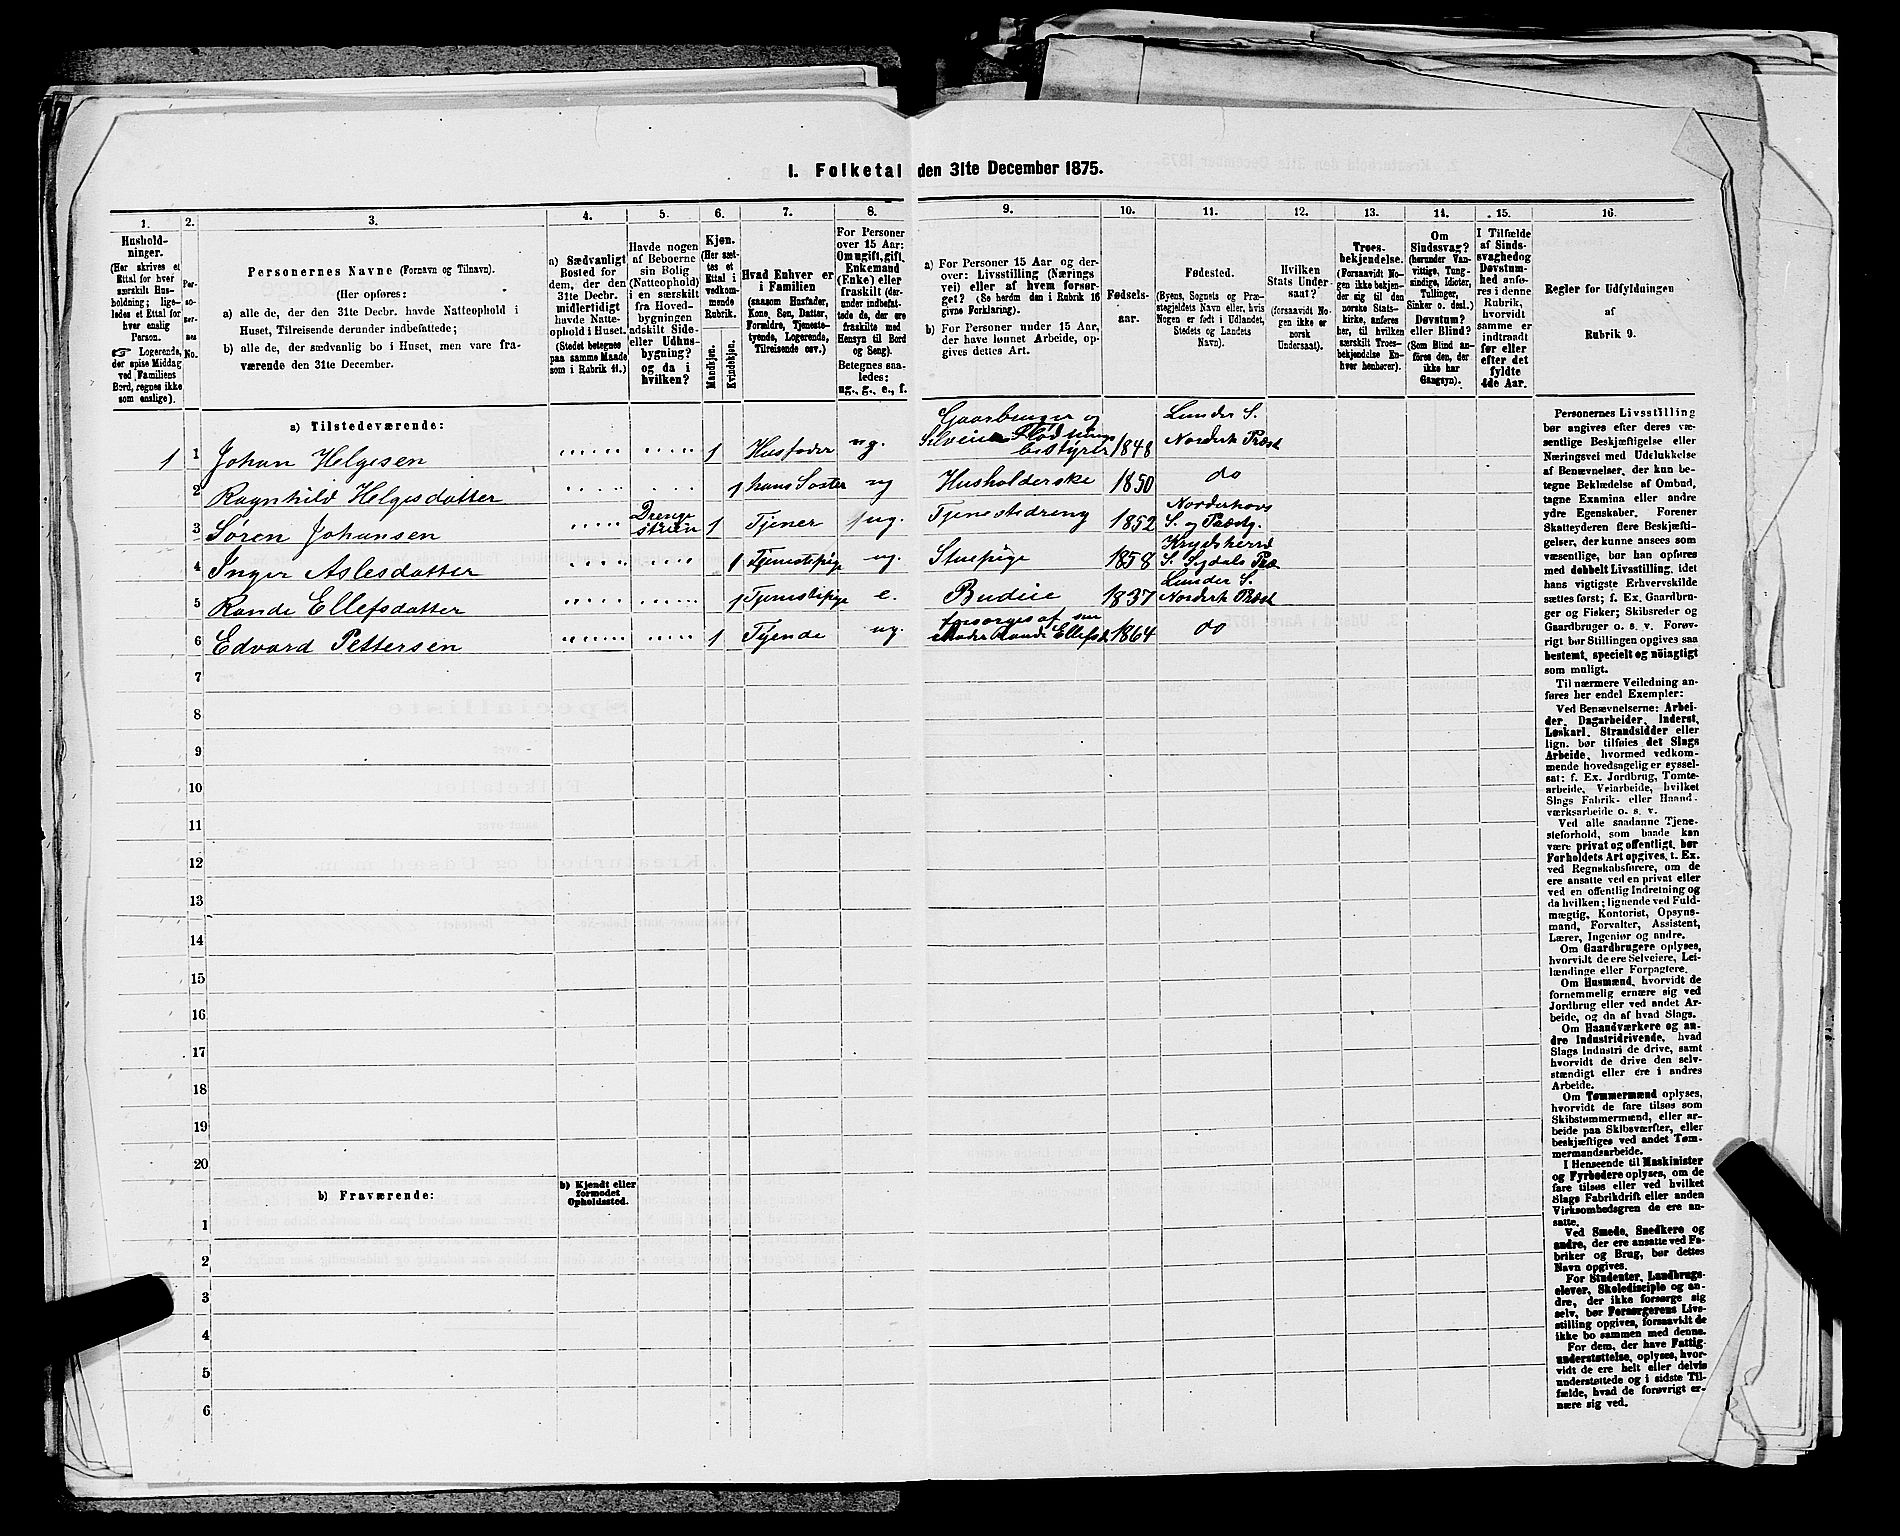 1. Folketal den 31te December 1875.
1. 2. 3. 4. 5. 6. 7. 8. 9. 10. 11. 12. 13. 14. 15. 16.
Hushold-
ninger.
(Her skrives et
Ettal for hver
særskilt Hus-
holdning; lige-
ledes et Ettal for
hver enslig
Person.
☞ Logerende,
der spise Middag
ved Familiens
Bord, regnes ikke
som enslige).
Per-
so-
ner-
nes
No.
Personernes Navne (Fornavn og Tilnavn).
(Her opføres:
a) alle de, der den 31te Decbr. havde Natteophold i
Huset, Tilreisende derunder indbefattede;
b) alle de, der sædvanlig bo i Huset, men vare fra-
værende den 31te December.
a) Sædvanligt
Bosted for
dem, der den
31te Decbr.
midlertidigt
havde Natte-
ophold i Huset.
(Stedet betegnes
paa samme Maade
som i Rubrik 11.)
Havde nogen
af Beboerne
sin Bolig
(Natteophold)
i en særskilt
fra Hoved-
bygningen
adskilt Side-
eller Udhus-
bygning?
og da i
hvilken?
Kjøn.
(Her sæt-
tes et
Ettal i
vedkom-
mende
Rubrik.
Mandkjøn.
Kvindekjøn.
Hvad Enhver er
i Familien
(saasom Husfader,
Kone, Søn, Datter,
Forældre, Tjeneste-
tyende, Logerende,
Tilreisende osv.)
For Personer
over 15 Aar:
Om ugift, gift,
Enkemand
(Enke) eller
fraskilt (der-
under indbefat-
tede de, der ere
fraskilte med
Hensyn til Bord
og Seng).
Betegnes saa-
ledes:
ug., g., e., f.
a) For Personer 15 Aar og der-
over: Livsstilling (Nærings
vei) eller af hvem forsør-
get? (Se herom den i Rubrik 16
givne Forklaring).
b) For Personer under 15 Aar,
der have lønnet Arbeide, op-
gives dettes Art.
Fødsels-
aar.
Fødested.
(Byens, Sognets og Præ-
stegjeldets Navn eller, hvis
Nogen er født i Udlandet,
Stedets og Landets
Navn).
Hvilken
Stats Under-
saat?
(forsaavidt No-
gen ikke er
norsk
Undersaat).
Troes-
bekjendelse.
(Forsaavidt No-
gen ikke bekjen-
der sig til den
norske Stats-
kirke, anføres
her, til hvilken
særskilt Troes-
bekjendelse En-
hver henhører).
Om
Sindssvag?
(herunder Van-
vittige, Tung-
sindige, Idioter,
Tullinger,
Sinker o. desl.)
Døvstum?
eller Blind?
(Som Blind an-
føres den, der
ikke har
Gangsyn).
I Tilfælde
af Sinds-
svaghed og
Døvstum-
hed anfø-
res i denne
Rubrik,
hvorvidt
samme er
indtraadt
før eller
efter det
fyldte
4de Aar.
Regler for Udfyldningen
af
Rubrik 9.
a) Tilstedeværende:
1 1 Johan Helgesen 1 Husfader ug. Gaarbruger og Selveier Flødnings bestyrer 1848 Lunder S. Norderh Præst
2 Ragnhild Helgesdatter 1 hans Søster ug Husholderske 1850 do
3 Søren Johansen Drenge stuen 1 Tjener ug. Tjenestedreng 1852 Norderhovs S. og Præstg.
4 Inger Aslesdatter 1 Tjenestepige ug. Stuepige 1858 Krydsherred S. Sigdals Præ
5 Rande Ellefsdatter 1 Tjenestepige e. Budeie 1837 Lunder S. Norderh Præst
6 Edvard Pettersen 1 Tyende ug. forsørges af sin Moder Rande Ellefsd. 1864 do
7
8
9
10
11
12
13
14
15
16
17
18
19
20
b) Fraværende:
b) Kjendt eller
formodet
Opholdssted.
1
2
3
4
5
6
Personernes Livsstilling
bør angives efter deres væ-
sentlige Beskjæftigelse eller
Næringsvei med Udelukkelse
af Benævnelser, der kun be-
tegne Beklædelse af Ombud,
tagne Examina eller andre
ydre Egenskaber. Forener
Skatteyderen flere Beskjæfti-
gelser, der kunne ansees som
væsentlige, bør han opføres
med dobbelt Livsstilling, idet
hans vigtigste Erhvervskilde
sættes først; f. Ex. Gaardbru-
ger og Fisker; Skibsreder og
Gaardbruger o. s. v. Forøv-
rigt bør Stillingen opgives saa
bestemt, specielt og nöiagtigt
som muligt.
Til nærmere Veiledning an-
føres her endel Exempler:
Ved Benævnelserne: Arbei-
der, Dagarbeider, Inderst,
Løskarl, Strandsidder eller
lign. bør tilføies det Slags
Arbeide, hvormed vedkom-
mende hovedsagelig er syssel-
sat: f. Ex. Jordbrug, Tomte-
arbeide, Veiarbeide, hvilket
Slags Fabrik- eller Haand-
værksarbeide o. s. v.
Ved alle saadanne Tjene-
steforhold, som baade kan
være privat og offentligt, bør
Forholdets Art opgives, t. Ex.
ved Regnskabsførere, om de
ere ansatte ved en privat eller
ved en offentlig Indretning og
da hvilken; lignende ved Fuld-
mægtig, Kontorist, Opsyns-
mand, Forvalter, Assistent,
Lærer, Ingeniør og andre.
Om Gaardbrugere oplyses,
hvorvidt de ere Selveiere, Lei-
lændinge eller Forpagtere.
Om Husmænd, hvorvidt de
fornemmelig ernære sig ved
Jordbrug eller ved andet Ar-
beide, og da af hvad Slags.
Om Haandværkere og an-
dre Industridrivende, hvad
Slags Industri de drive, samt
hvorvidt de drive den selv-
stændigt eller ere i andres
Arbeide.
Om Tømmermænd oplyses,
hvorvidt de fare tilsøs som
Skibstømmermænd, eller ar-
beide paa Skibsværfter, eller
beskjæftiges ved andet Tøm-
mermandsarbeide.
I Henseende til Maskinister
og Fyrbødere oplyses, om de
fare tilsøs eller ved hvilket
Slags Fabrikdrift eller anden
Virksomhedsgren de ere an-
satte.
Ved Smede, Snedkere og
andre, der ere ansatte ved Fa-
briker og Brug, bør dettes
Navn opgives.
For Studenter, Landbrugs-
elever, Skoledisciple og an-
dre, der ikke forsørge sig
selv, bør Forsørgerens Livs-
stilling opgives, forsaavidt de
ikke bo sammen med denne.
For dem, der have Fattig-
understøttelse, oplyses, hvor-
vidt de ere helt eller delvis
understøttede og i sidste Til-
fælde, hvad de forøvrigt er-
nære sig ved.